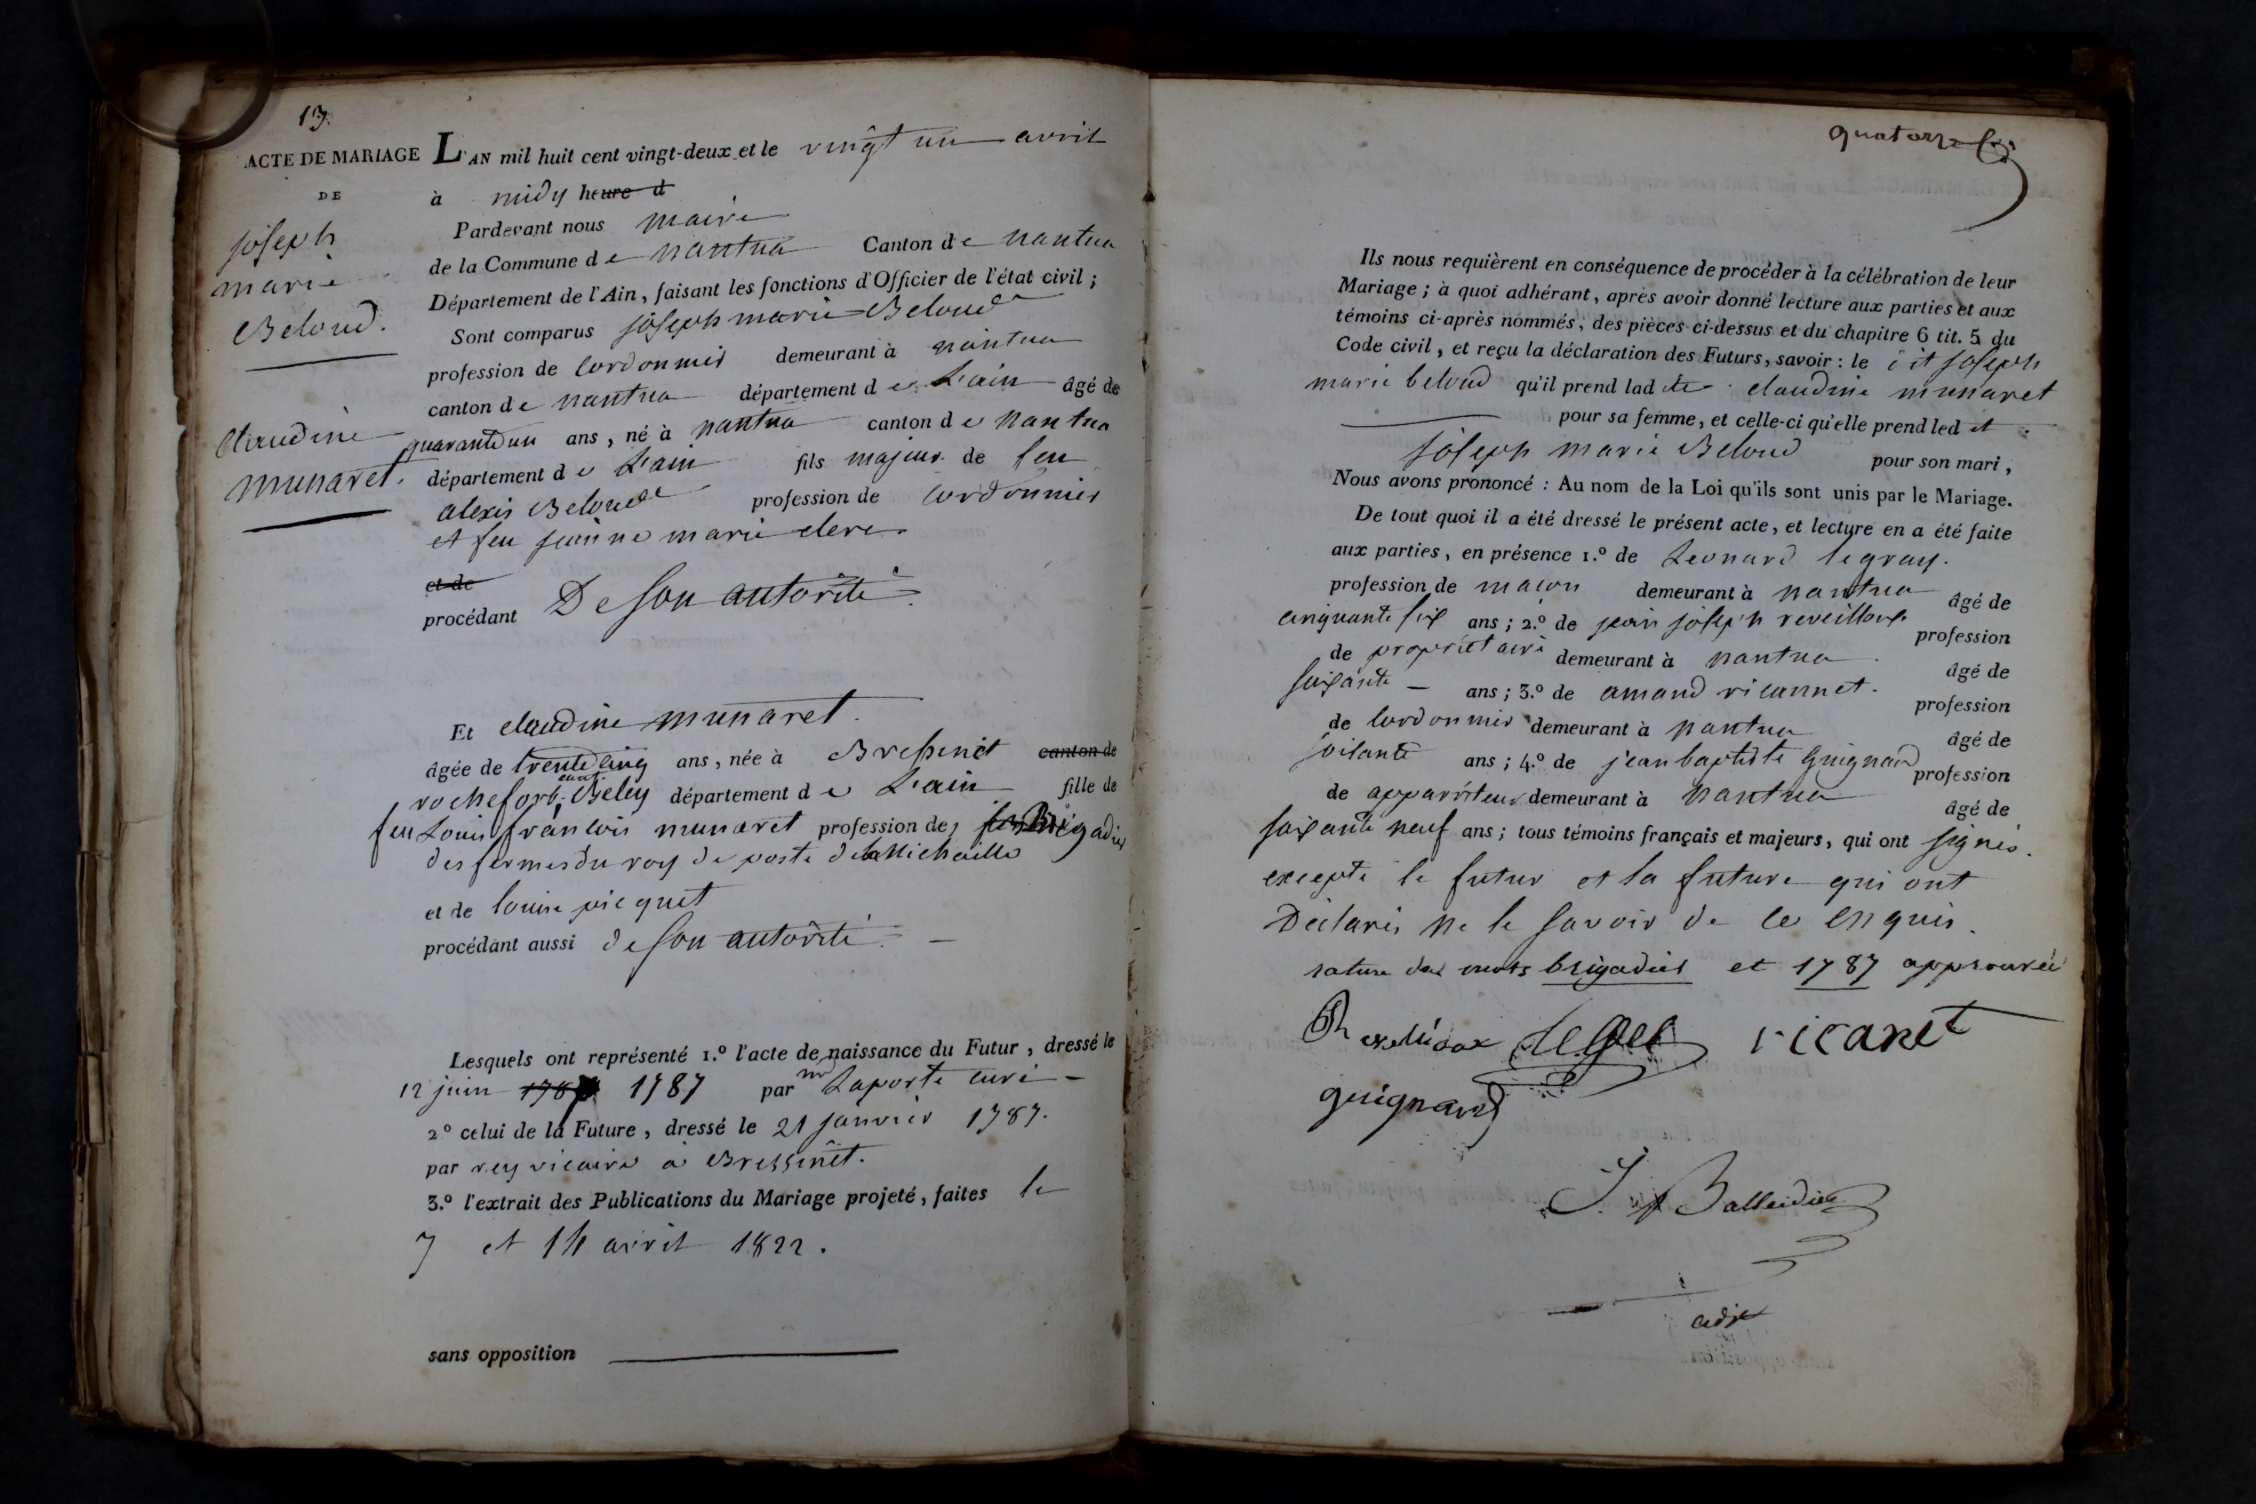 13.
ACTE DE MARIAGE
DE
joseph
marie
Beloud.
Claudine
munaret.
L'AN mil huit cent vingt-deux et le vingt un avril
à midy heure d
Pardevant nous maire
de la Commune de nantua Canton de nantua
Département de l'Ain, faisant les fonctions d'Officier de l'état civil ;
Sont comparus joseph marie Beloud
profession de cordonnier demeurant à nantua
canton de nantua département de L'ain âgé de
quarante un ans, né à nantua canton de nantua
département de L'ain fils majeur de feu
alexis Beloud profession de cordonnier
et feu jeanne marie clerc
et de
procédant De son autorité.
Et claudine munaret.
âgée de trente cinq ans, née à Bressenit canton de
rochefort, cant. Beley département de L'ain fille de
feu Louis françois munaret profession de Brigadier
des fermes du roy de poste de Michaille
et de louise picquet
procédant aussi de son autorité.
Lesquels ont représenté 1.º l'acte de naissance du Futur, dressé le
12 juin 1787 par mr Laporte curé
2º celui de la Future, dressé le 21 janvier 1787.
par rey vicaire à Bressinet.
3.º l'extrait des Publications du Mariage projeté, faites le
7 et 14 avril 1822.
sans opposition
quatorze
Ils nous requièrent en conséquence de procéder à la célébration de leur
Mariage ; à quoi adhérant, après avoir donné lecture aux parties et aux
témoins ci-après nommés, des pièces ci-dessus et du chapitre 6 tit. 5 du
Code civil, et reçu la déclaration des Futurs, savoir : le dit joseph
marie beloud qu'il prend lad ite claudine munaret
pour sa femme, et celle-ci qu'elle prend led it
joseph marie Beloud pour son mari,
Nous avons prononcé : Au nom de la Loi qu'ils sont unis par le Mariage.
De tout quoi il a été dressé le présent acte, et lecture en a été faite
aux parties, en présence 1.º de Leonard legray.
profession de macon demeurant à nantua âgé de
cinquante six ans ; 2.º de jean joseph reveilloux profession
de propriétaire demeurant à nantua âgé de
soixante ans ; 3.º de amand ricannet. profession
de cordonnier demeurant à nantua âgé de
soixante ans ; 4.º de jean baptiste Guignard profession
de appariteur demeurant à nantua âgé de
soixante neuf ans ; tous témoins français et majeurs, qui ont signés.
excepté le futur et la future qui ont
Déclarés ne le savoir de ce enquis.
rature des mots brigadier et 1787 approuvée
ricanet
guignard
adjt